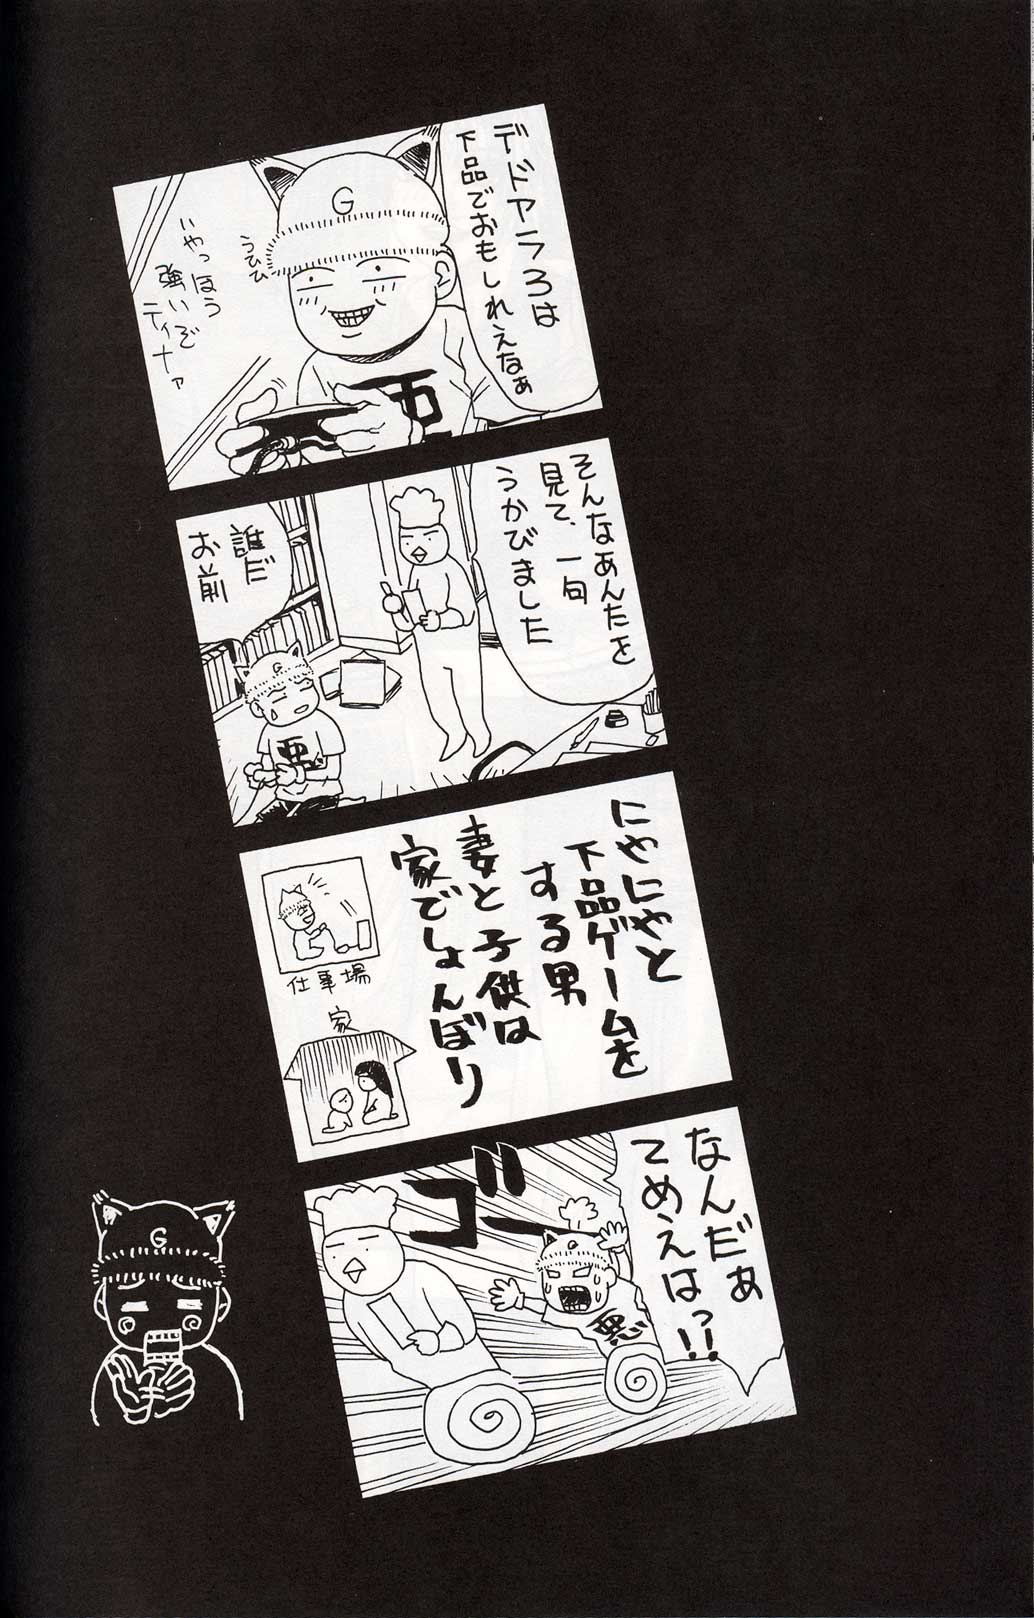 デドアラ3は
下品でおもしれえなぁ
G
うひひ
いやっほう
強いぞ
ティナァ
そんなあんたを
見て、一句
うかびました
誰だ
お前
G
悪
にやにやと
下品ゲームを
する男
妻と子供は
家でしょんぼり
仕事場
家
なんだぁ
てめえはっ!!
ゴー
G
悪
G